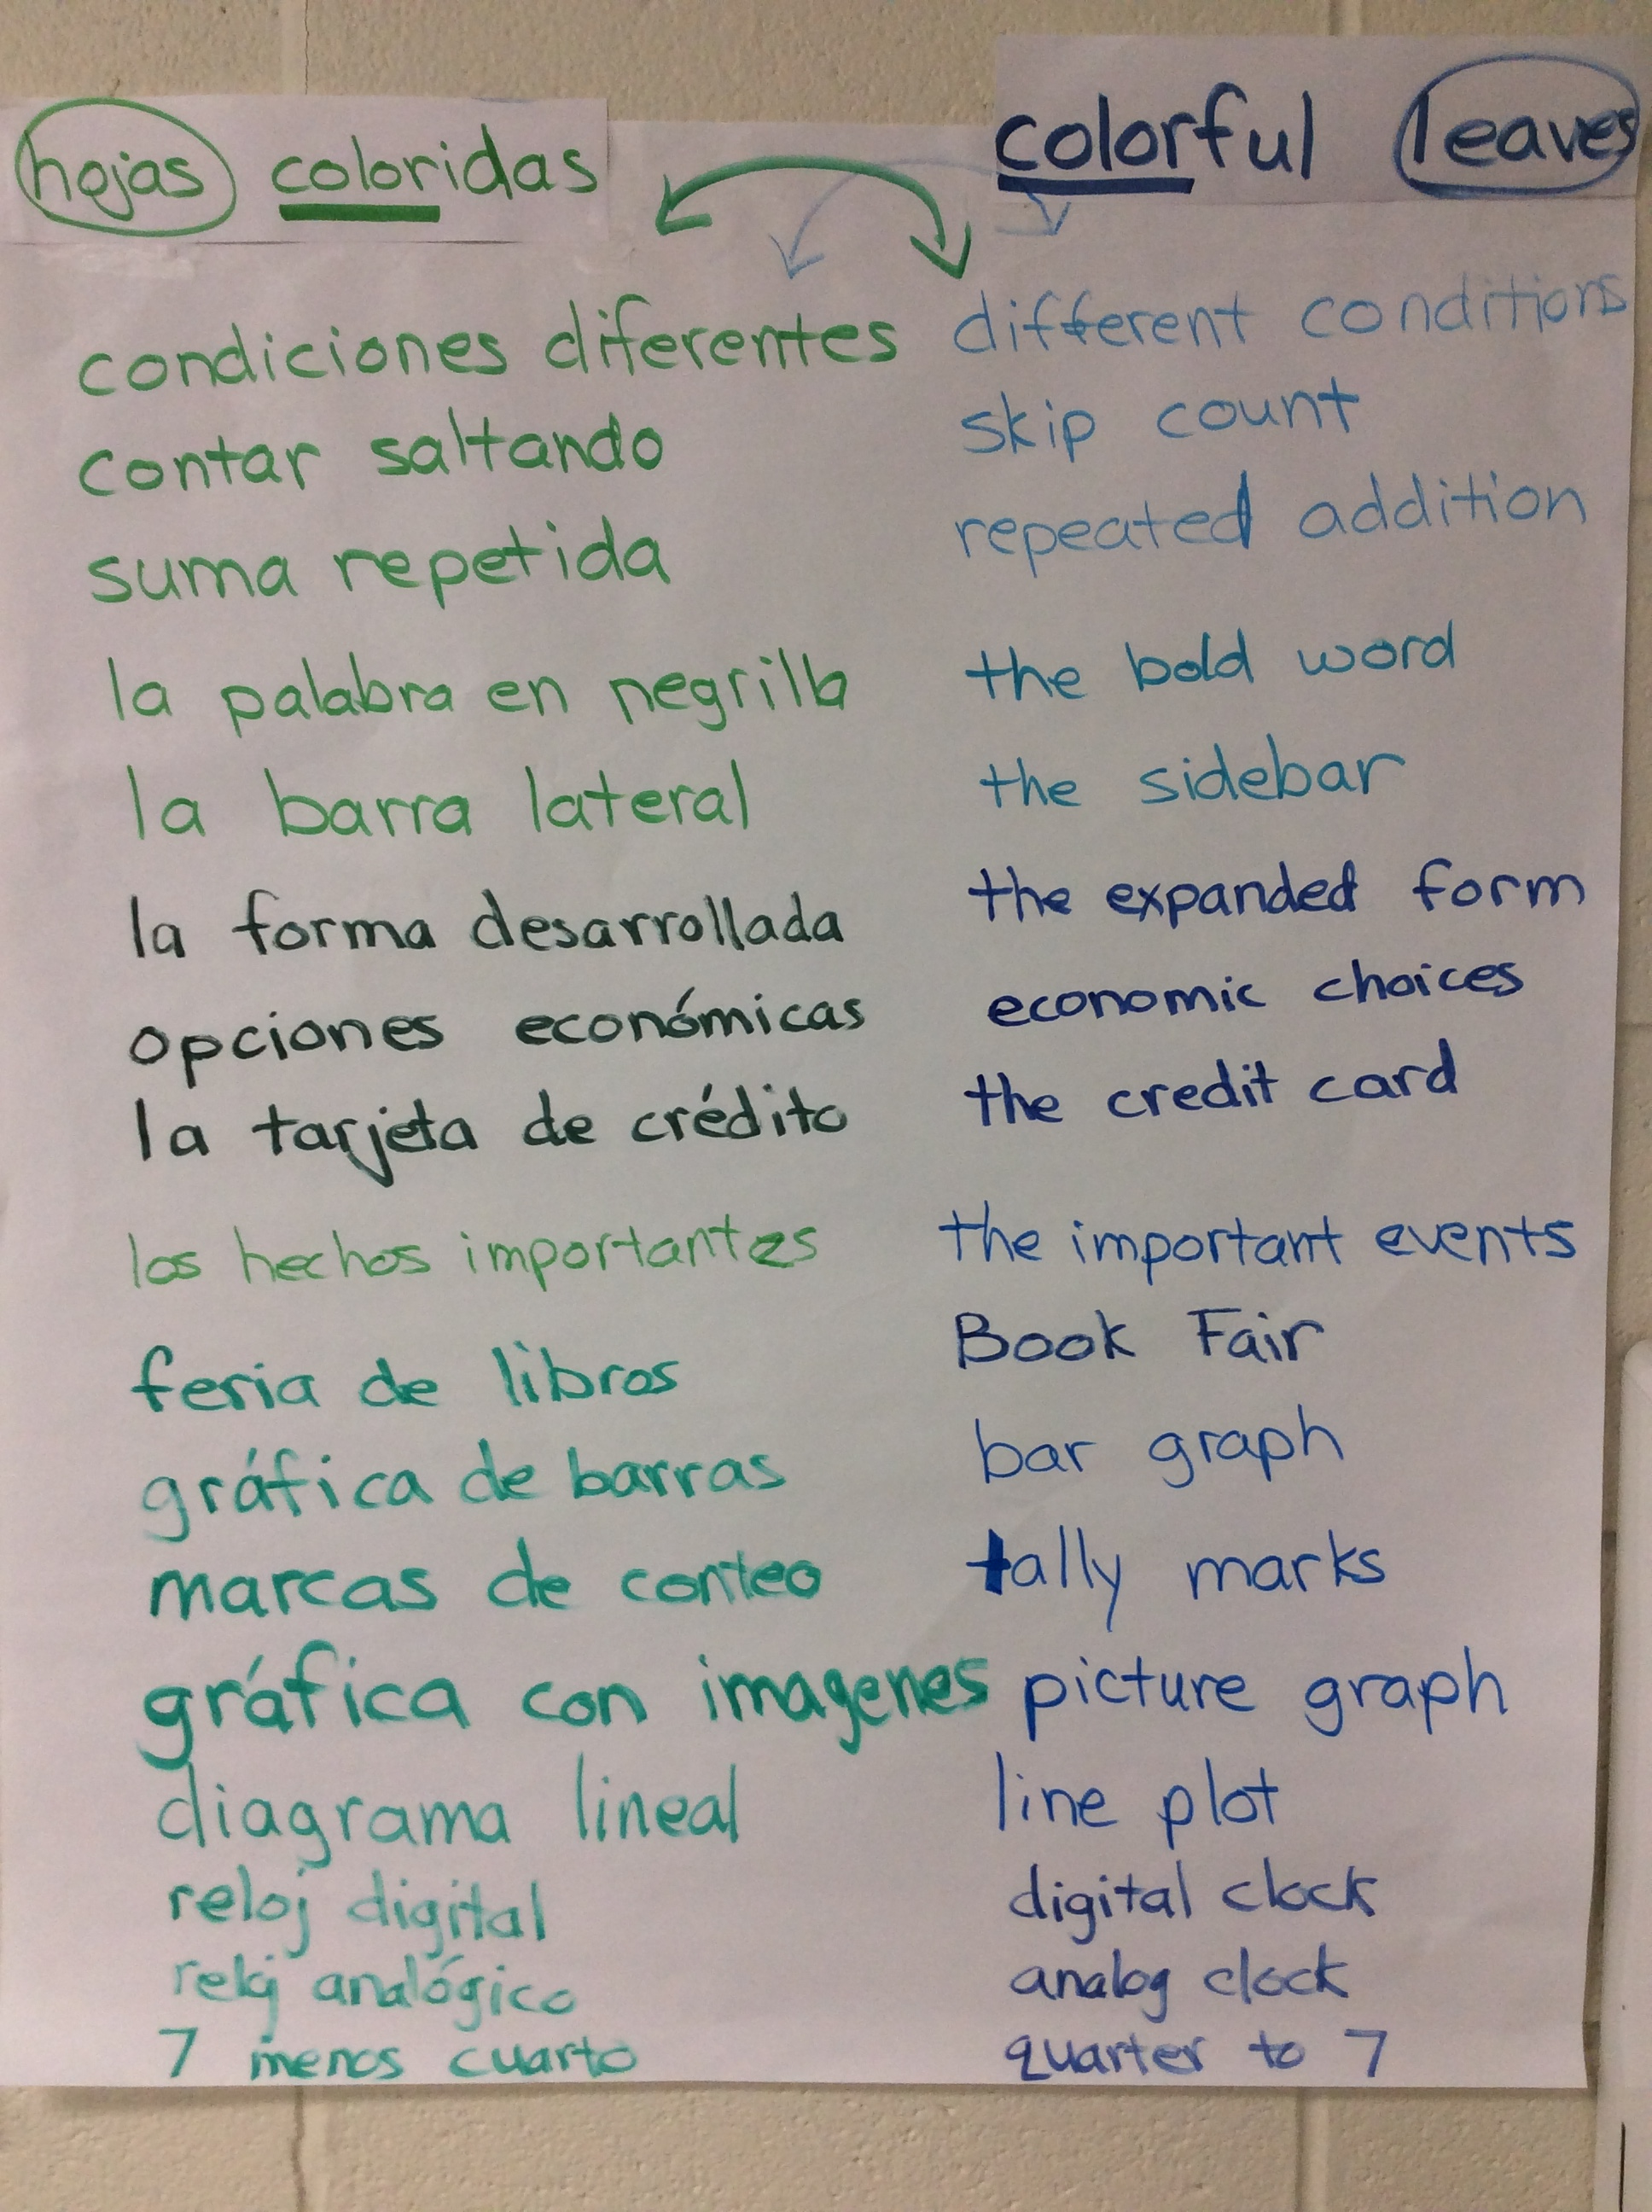 hojas coloridas colorful leaves
condiciones diferentes different conditions
contar saltando skip count
suma repetida repeated addition
la palabra en negrilla the bold word
la barra lateral the sidebar
la forma desarrollada the expanded form
opciones económicas economic choices
la tarjeta de crédito the credit card
los hechos importantes the important events
feria de libros Book Fair
gráfica de barras bar graph
marcas de conteo tally marks
gráfica con imagenes picture graph
diagrama lineal line plot
reloj digital digital clock
reloj analógico analog clock
7 menos cuarto quarter to 7